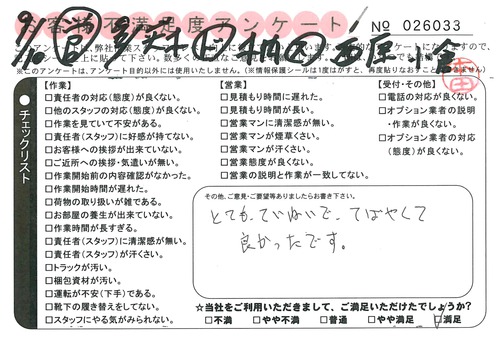 お客様不満足度アンケート
№ 026033
※このアンケートは、アンケート目的以外には使用いたしません。(※情報保護シールは1度はがすと、再度貼りなおすことはできません)
チェックリスト
【作業】
□責任者の対応(態度)が良くない。
□他のスタッフの対応(態度)が良くない。
□作業を見ていて不安がある。
□責任者(スタッフ)に好感が持てない。
□お客様への挨拶が出来ていない。
□ご近所への挨拶・気遣いが無い。
□作業開始前の内容確認がなかった。
□作業開始時間が遅れた。
□荷物の取り扱いが雑である。
□お部屋の養生が出来ていない。
□作業時間が長すぎる。
□責任者(スタッフ)に清潔感が無い。
□責任者(スタッフ)が汗くさい。
□トラックが汚い。
□梱包資材が汚い。
□運転が不安(下手)である。
□靴下の履き替えをしてない。
□スタッフにやる気がみられない。
【営業】
□見積もり時間に遅れた。
□見積もり時間が長い。
□営業マンに清潔感が無い。
□営業マンが煙草くさい。
□営業マンが汗くさい。
□営業態度が良くない。
□営業の説明と作業が一致してない。
【受付・その他】
□電話の対応が良くない。
□オプション業者の説明・作業が良くない。
□オプション業者の対応(態度)が良くない。
その他、ご意見・ご要望等ありましたらお書き下さい。
とても、ていねいで、てばやくて
良かったです。
☆当社をご利用いただきまして、ご満足いただけたでしょうか?
□不満 □やや不満 □普通 □やや満足 □満足